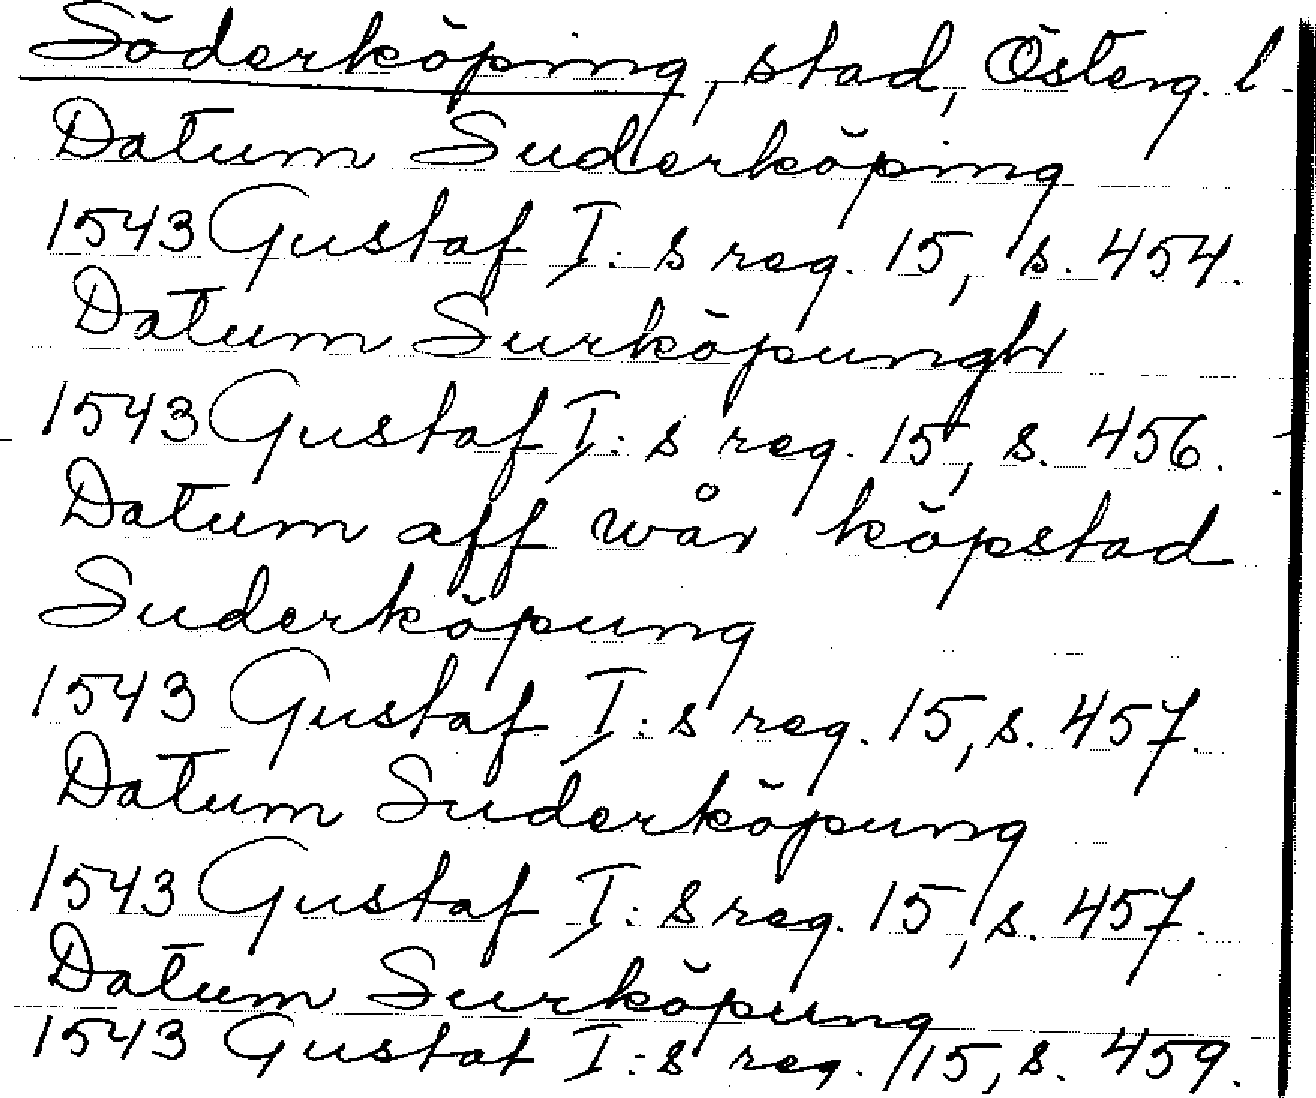 Söderköping, stad, Österg. l
Datum Suderköping
1543 Gustaf I:s reg. 15, s. 454.
Datum Surköpungh
1543 Gustaf I:s reg. 15, s. 456.
Datum aff wår köpstad
Suderköpung
1543 Gustaf I:s reg. 15, s. 457.
Datum Suderköpung
1543 Gustaf I:s reg. 15, s. 457.
Datum Surköpung
1543 Gustaf I:s reg. 15, s. 459.